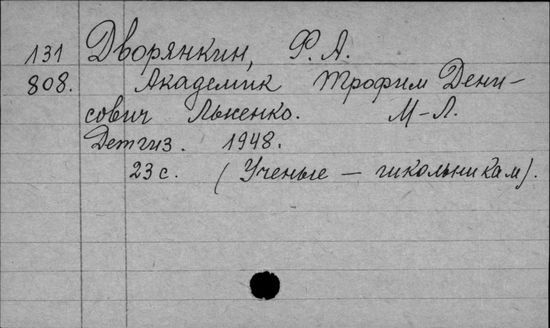 131 Дворянкин, Ф. А.
808. Академик Трофим Дени-
сович Лысенко. М-Л.
Детгиз. 1948.
23 с. (Ученые — школьникам).